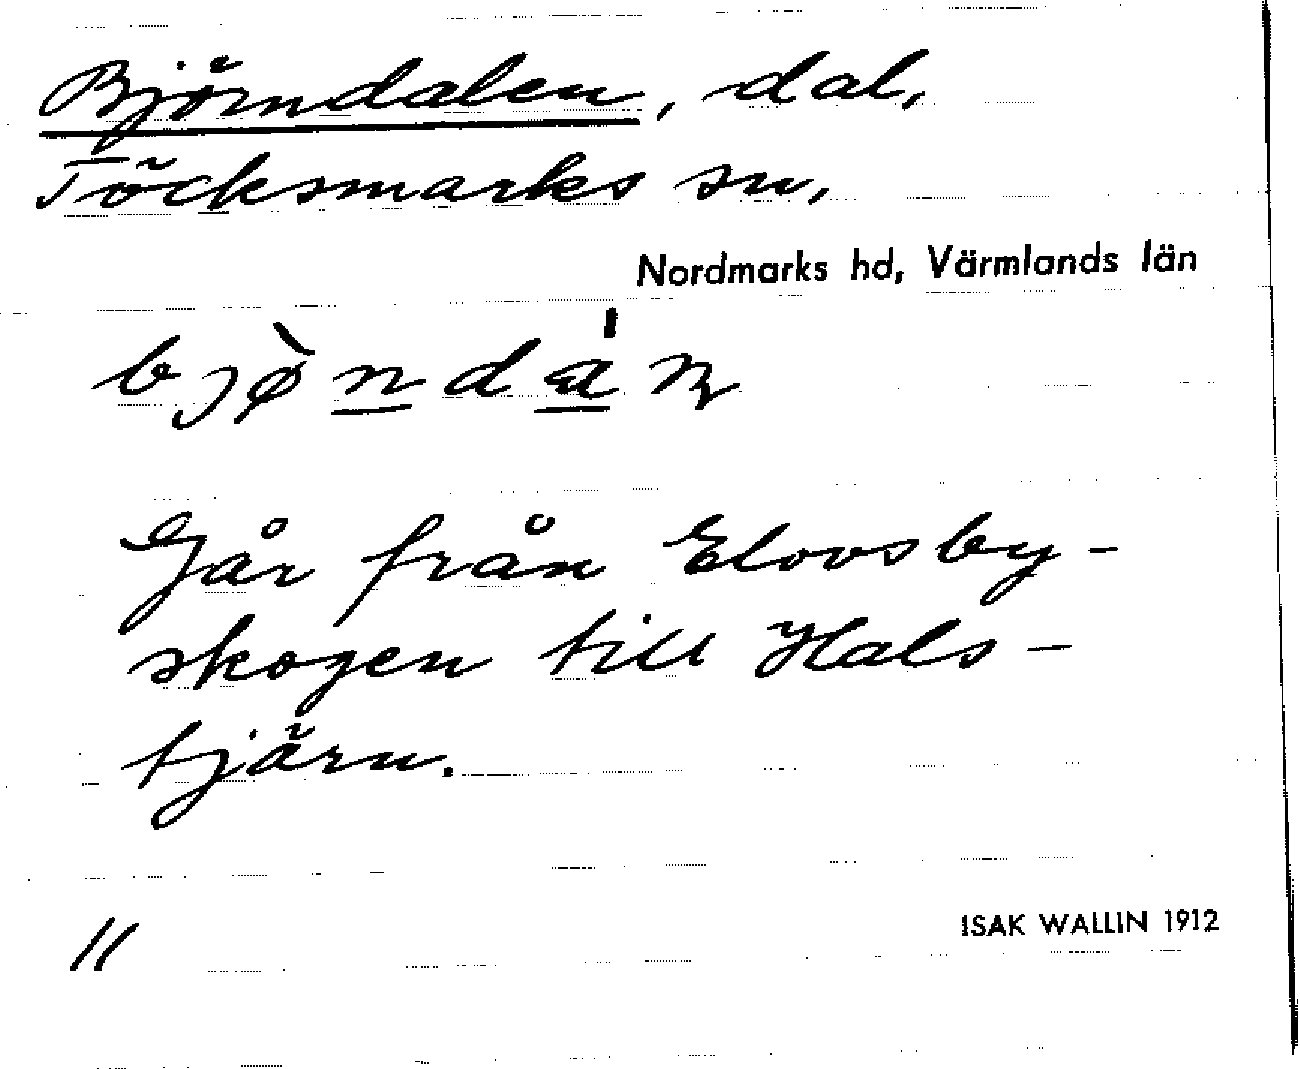 Björndalen, dal,
Töcksmarks sn,
Nordmarks hd, Värmlands län
bjø̀ndáɲ
Går från Elovsby-
skogen till Hals-
tjärn.
11
ISAK WALLIN 1912